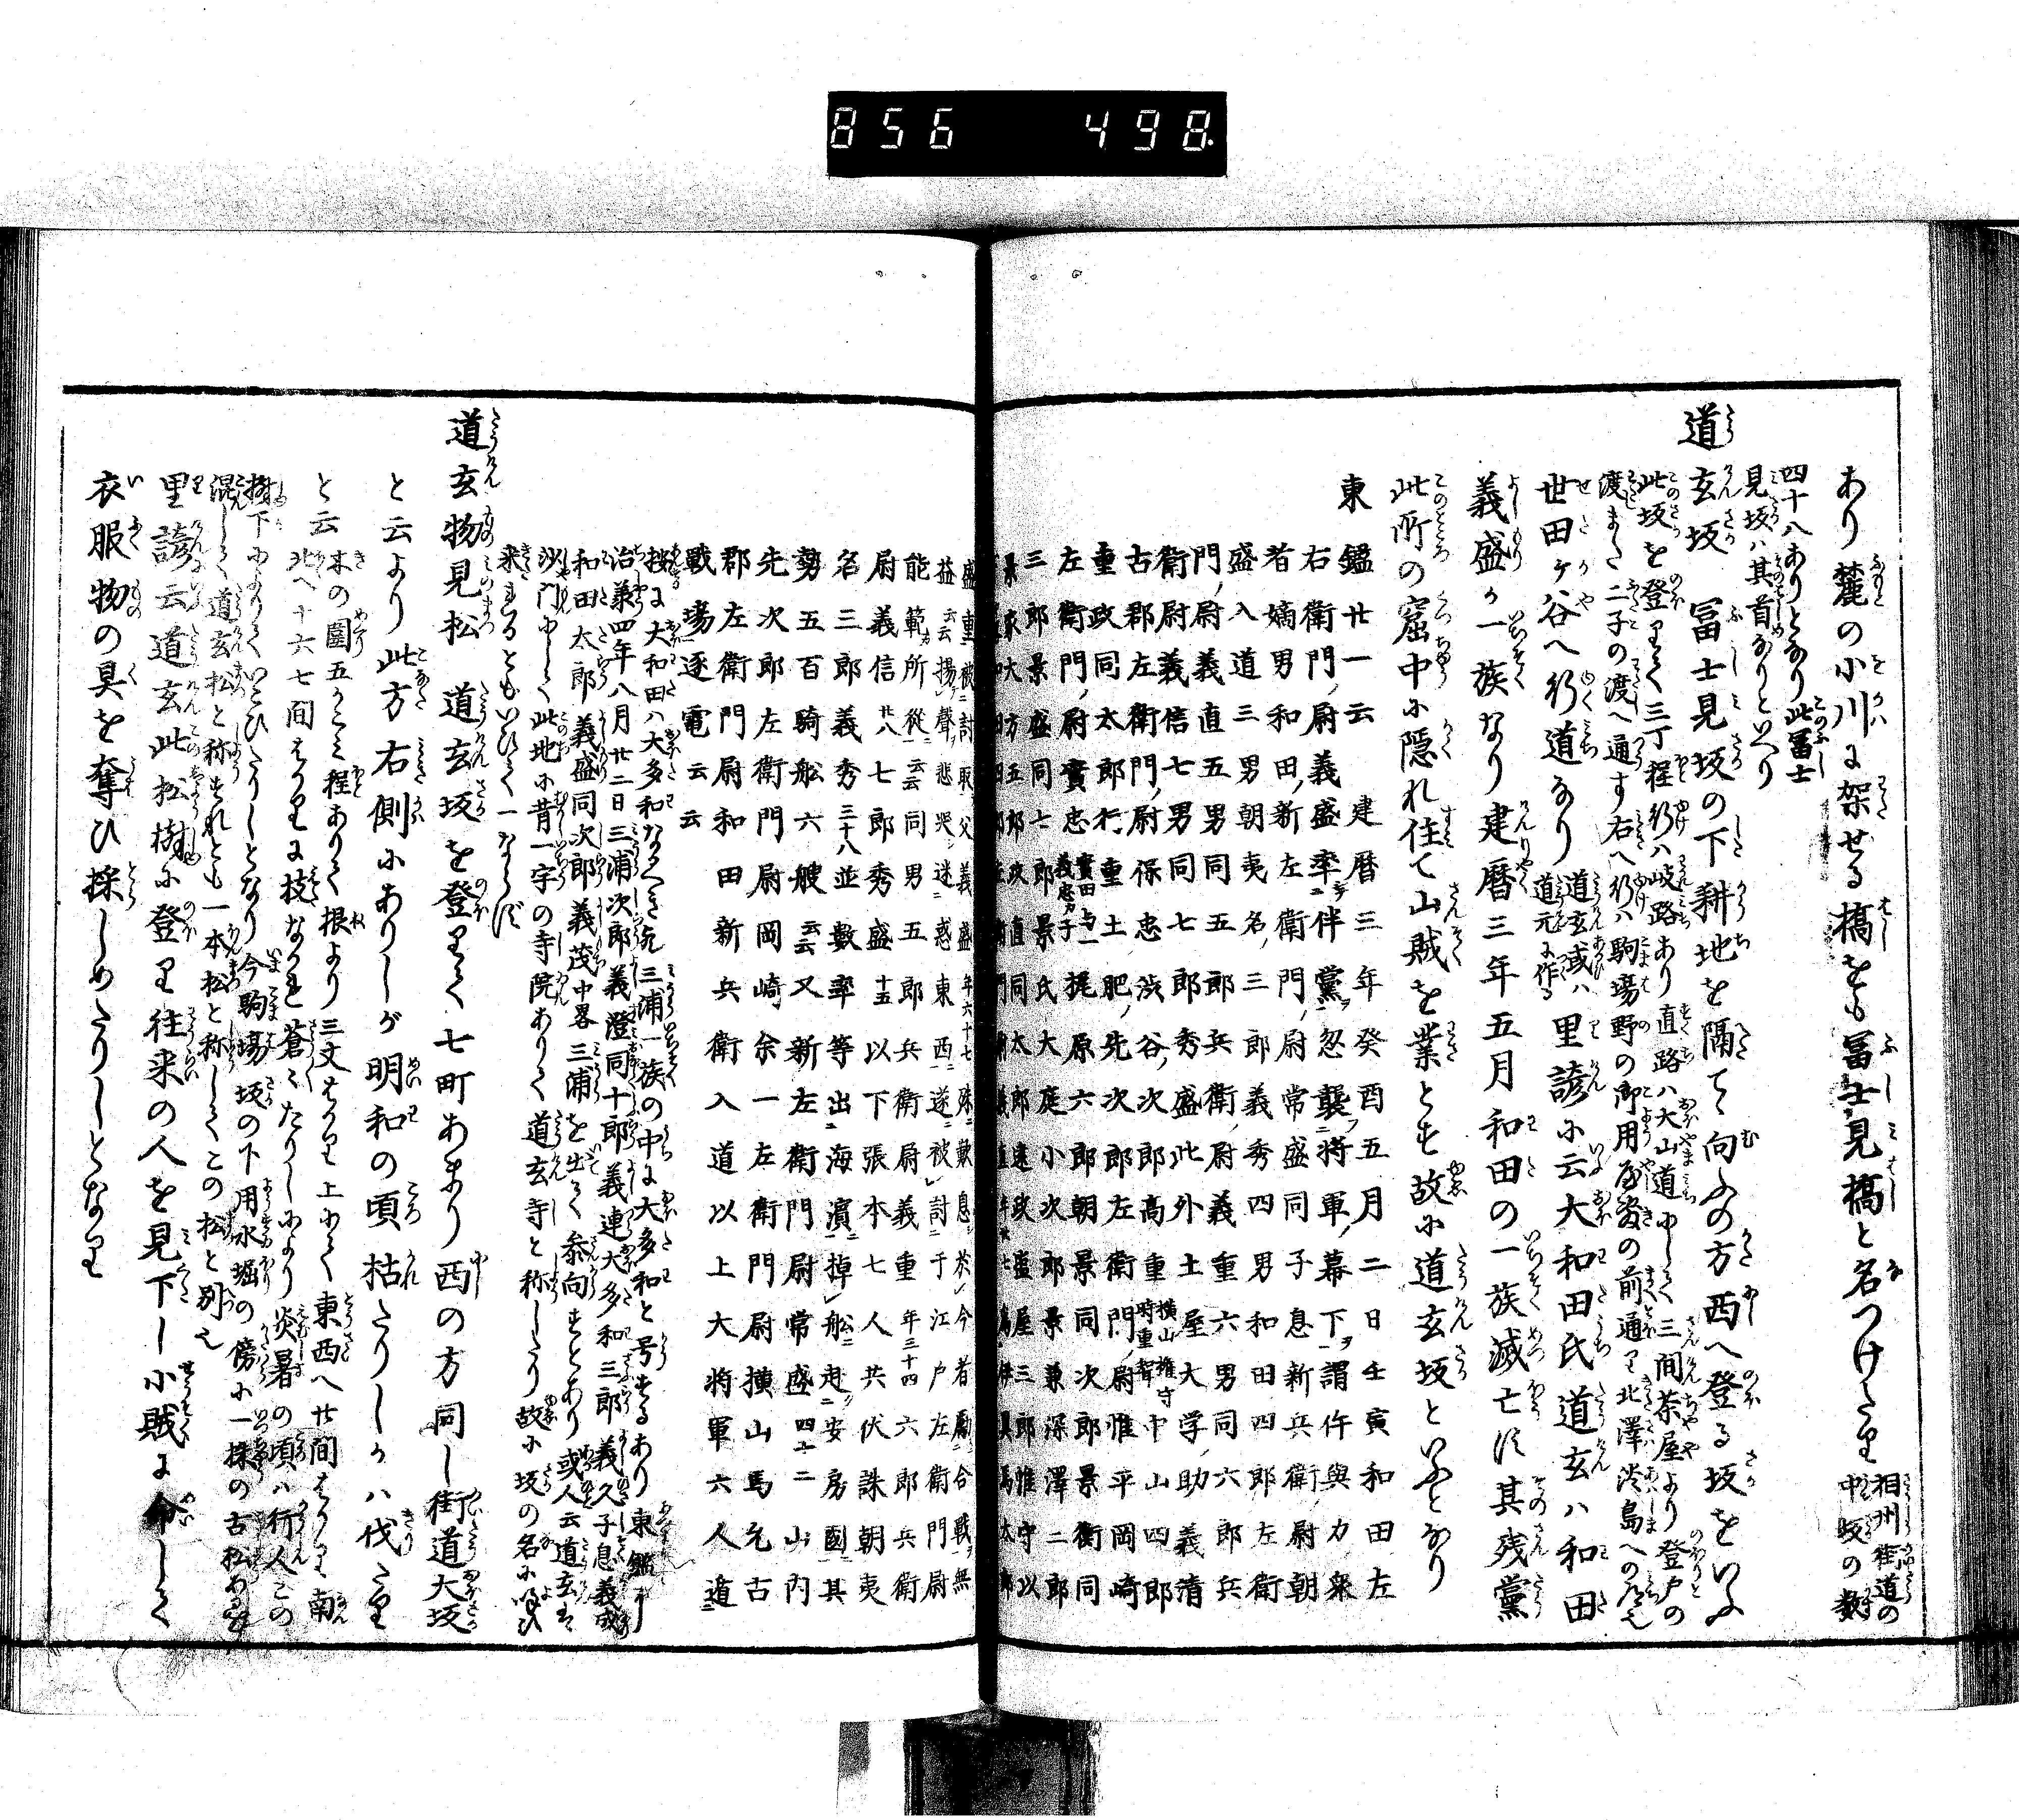 856 498
あり麓の小川に架せる橋をも冨士見橋と名つけたり
相州街道の
中坂の数
四十八ありとなり此冨士
見坂ハ其首なりといへり
道玄坂 冨士見坂の下耕地を隔て向ふの方西へ登る坂をいふ
此坂を登りて三丁程行ハ岐路あり直路ハ大山道にして三間茶屋より登戸の
渡また二子の渡へ通す右へ行ハ駒場野の御用屋敷の前通り北澤淡島への道也
世田ヶ谷へ行道なり
道玄或ハ
道元に作る
里諺に云大和田氏道玄ハ和田
義盛か一族なり建暦三年五月和田の一族滅亡す其残黨
此所の窟中に隠れ住て山賊を業とす故に道玄坂といふとなり
東鑑廿一云建暦三年癸酉五月二日壬寅和田左
右衛門尉義盛率伴黨忽襲将軍幕下謂件與力衆
者嫡男和田新左衛門尉常盛同子息新兵衛尉朝
盛入道三男朝夷名三郎義秀四男和田四郎左衛
門尉義直五男同五郎兵衛尉義重六男同六郎兵
衛尉義信七男同七郎秀盛此外土屋大学助義清
古郡左衛門尉保忠渋谷次郎高重
横山権守
時重聟
中山四郎
重政同太郎行重土肥先次郎左衛門尉惟平岡崎
左衛門尉實忠
實田与一
義忠カ子
梶原六郎朝景同次郎景衡同
三郎景盛同七郎景氏大庭小次郎景兼深澤二郎
景家大方五郎政直同太郎遠政塩屋三郎惟守以
義盛
年六十七
殊歎息
益云云揚聲悲哭迷惑東西遂被討于江戸左衛門尉
能範所從云云同男五郎兵衛尉義重
年三十四
六郎兵衛
尉義信
廿八
七郎秀盛
十五
以下張本七人共伏誅朝夷
名三郎義秀
三十八
並數率等出海濱掉船赴安房國其
勢五百騎船六艘云云又新左衛門尉常盛
四十二
山内
先次郎左衛門尉岡崎余一左衛門尉横山馬允古
郡左衛門尉和田新兵衛入道以上大将軍六人遁
戰場逐電云云
按に大和田ハ大多和なるへき歟三浦一族の中に大多和と号するあり東鑑に
治承四年八月廿二日三浦次郎義澄同十郎義連大多和三郎義久子息義成
和田太郎義盛同次郎義茂中畧三浦を出て参向すとあり或人云道玄は
沙門にして此地に昔一宇の寺院ありて道玄寺と称したり故に坂の名に呼ひ
来れるともいひて一ならす
道玄物見松 道玄坂を登りて七町あまり西の方同し街道大坂
と云より此方右側にありしが明和の頃枯たりしかハ伐たり
と云
木の圍五かゝえ程ありて根より三丈はかり上にて東西へ廿間はかり南
北へ十六七間はかりに枝なかれ蒼々たりしにより炎暑の頃ハ行人この
樹下によりていこひたりしとなり今駒場坂の下用水堀の傍に一株の古松あるを
混して道玄松と称すれとも一本松と称してこの松と別也
里諺云道玄此松樹に登り往来の人を見下し小賊に命して
衣服物の具を奪ひ採しめたりしとなり